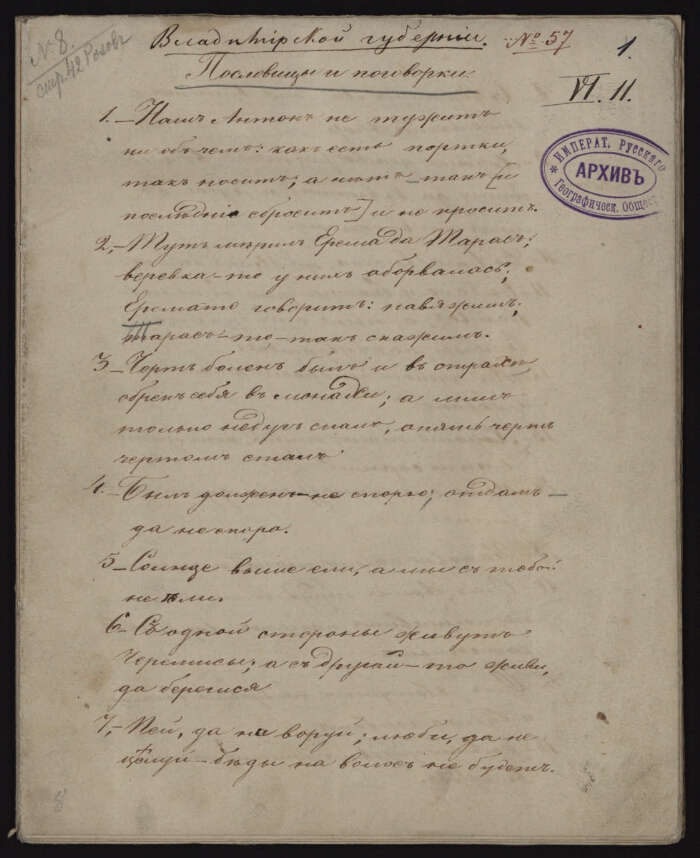 № 8.
стр. 42 Розовъ
Владимірской губерніи. № 57
1.
Пословицы и поговорки.
VI. 11.
* ИМПЕРАТ. РУССКАГО
АРХИВЪ
Географическ. Общест
1. — Нашъ Антонъ не тужитъ
ни объ чемъ: какъ есть портки,
такъ носитъ; а нѣтъ — такъ [и
послѣдніе сброситъ] и не проситъ.
2. — Тутъ мѣрилъ Ерема да Тарасъ;
веревка-то у нихъ аборвалась;
Ерема то говоритъ: навяжимъ;
Тарасъ-то — такъ скажимъ.
3 — Чертъ боленъ былъ и въ страхѣ
обрекъ себя въ монахи; а лишь
только недугъ спалъ, опять чертъ
чертомъ сталъ
4. — Былъ долженъ — не спорю; отдамъ —
да не скоро.
5 — Солнце выше ели, а мы съ тобой
не ѣли.
6 — Съ одной стороны живутъ
Черемисы; а съ другой-то живи,
да берегися
7, — Пей, да не воруй; люби, да не
цѣлуй — бѣды на волосъ не будетъ.
8